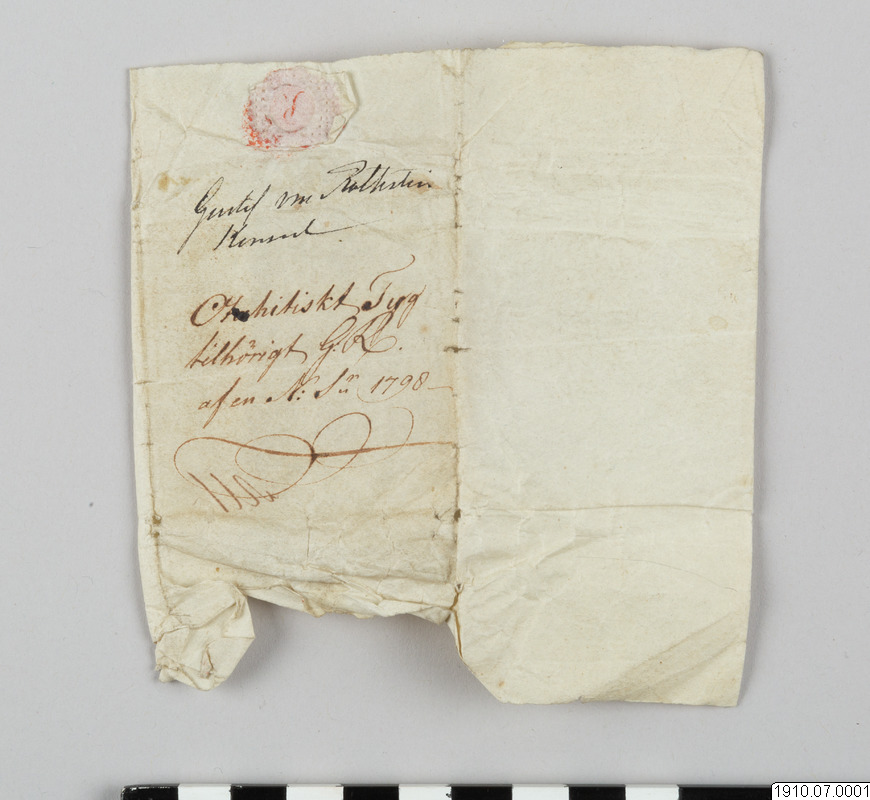 Gustf von Rothstein
Konsul
Otahitiskt Tyg
tilhörigt G.R.
af en N: Sn 1798
1910.07.0001